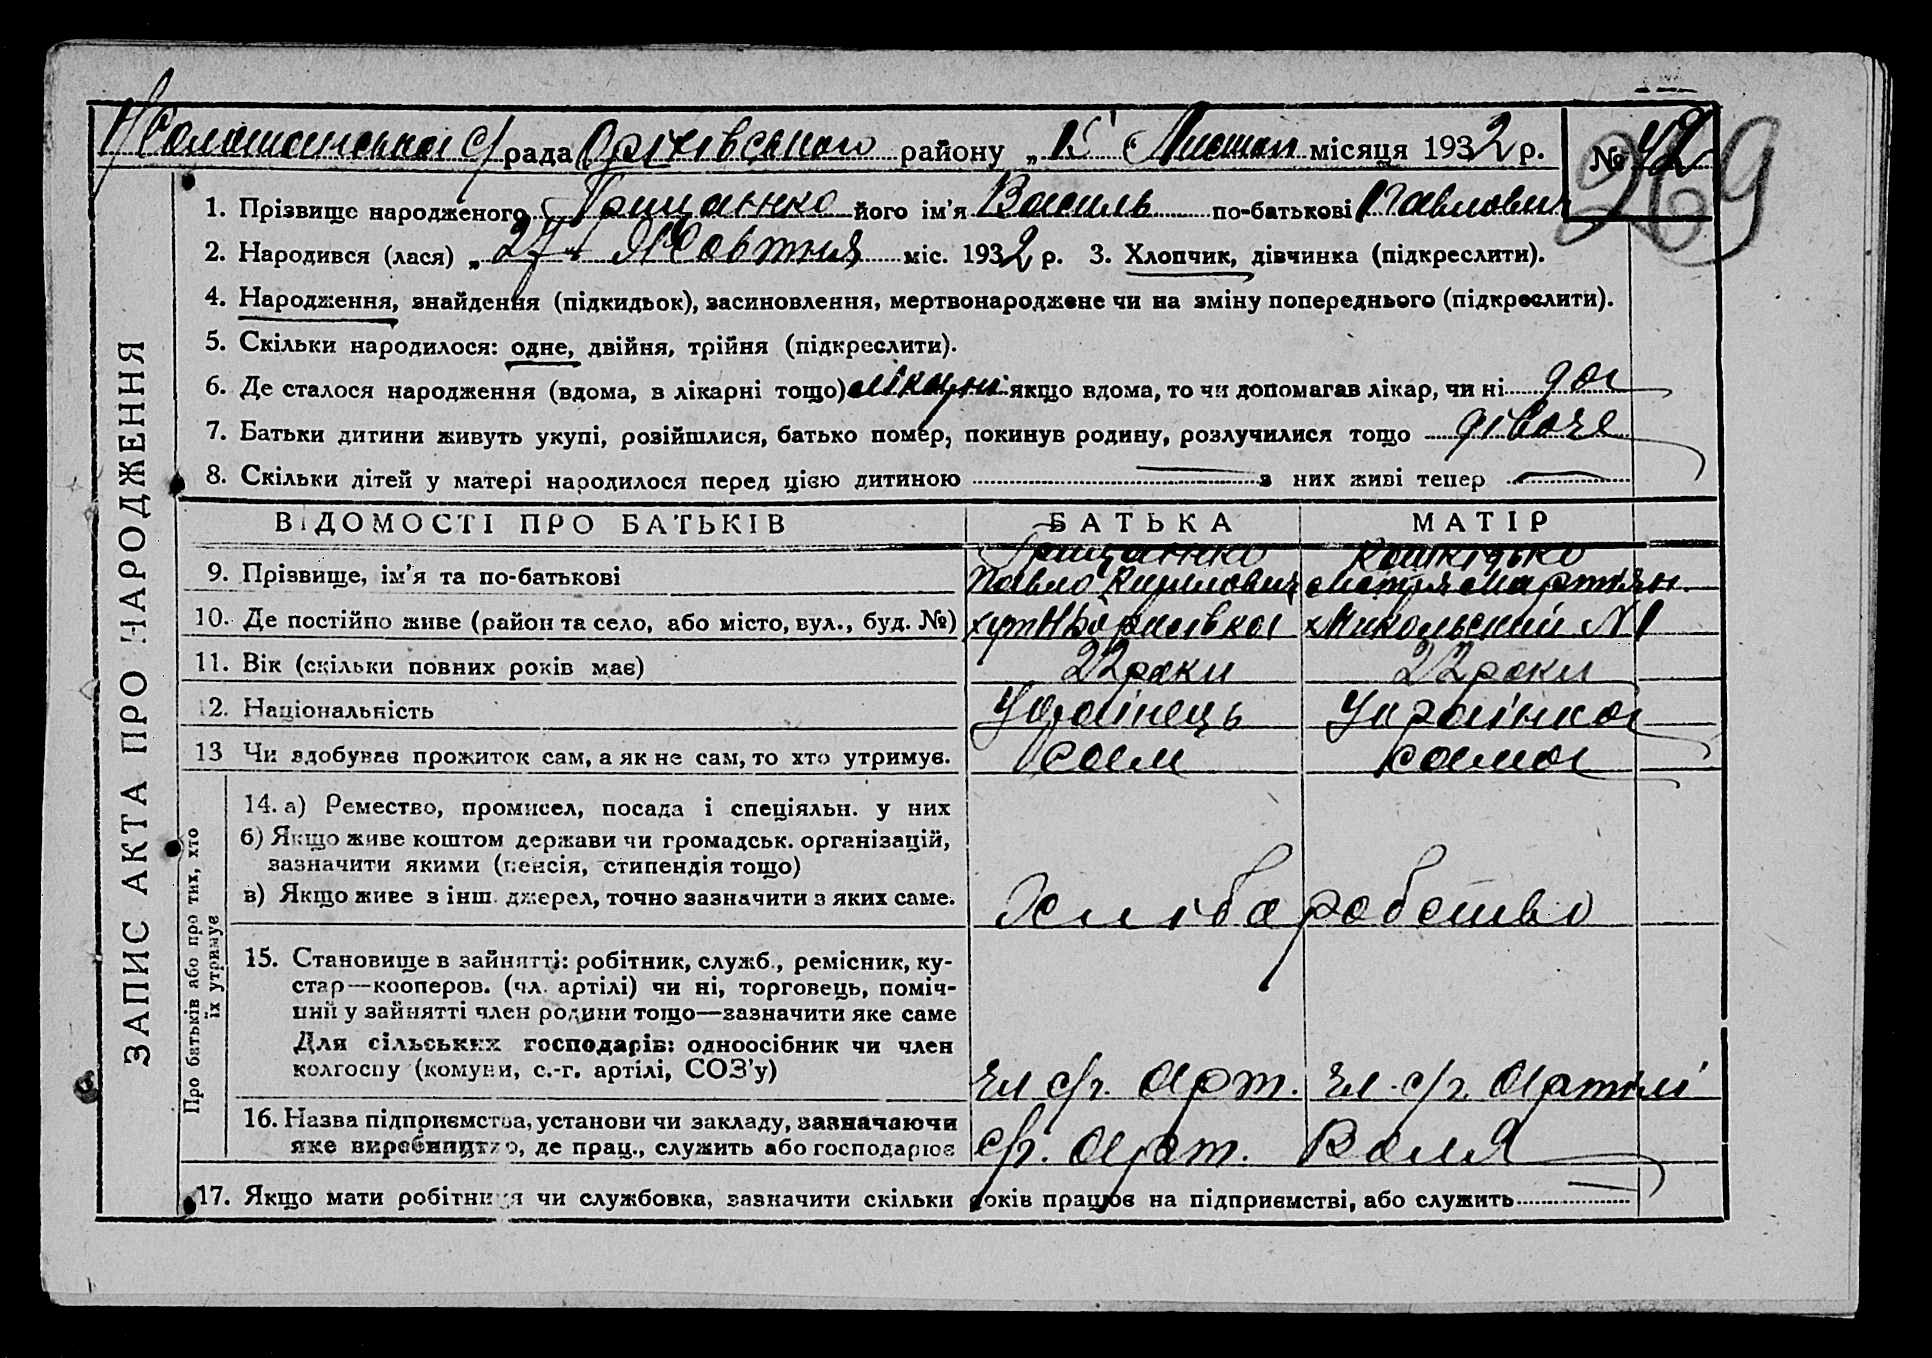 рада Оріхівського району „15“ Листоп місяця 1932 р. № 42
269
1. Прізвище народженого Грищенко його ім'я Василь по-батькові Павлович
2. Народився (лася) „27“ Жовтня міс. 1932 р. 3. Хлопчик, дівчинка (підкреслити).
4. Народження, знайдення (підкидьок), засиновлення, мертвонароджене чи на зміну попереднього (підкреслити).
5. Скільки народилося: одне, двійня, трійня (підкреслити).
6. Де сталося народження (вдома, в лікарні тощо) лікарні якщо вдома, то чи допомагав лікар, чи ні
7. Батьки дитини живуть укупі, розійшлися, батько помер, покинув родину, розлучилися тощо
8. Скільки дітей у матері народилося перед цією дитиною — з них живі тепер —
ЗАПИС АКТА ПРО НАРОДЖЕННЯ
ВІДОМОСТІ ПРО БАТЬКІВ БАТЬКА МАТІР
9. Прізвище, ім'я та по-батькові Грищенко Павло Кирилович
10. Де постійно живе (район та село, або місто, вул., буд. №) хут х Никольский №1
11. Вік (скільки повних років має) 22 роки 22 роки
12. Національність Українець Українка
13 Чи здобуває прожиток сам, а як не сам, то хто утримує. сам сама
Про батьків або про тих, хто
їх утримує
14. а) Ремество, промисел, посада і спеціяльн. у них
б) Якщо живе коштом держави чи громадськ. організацій,
зазначити якими (пенсія, стипендія тощо)
в) Якщо живе з інш. джерел, точно зазначити з яких саме.
Хліборобство
15. Становище в зайнятті: робітник, служб., ремісник, ку-
стар—кооперов. (чл. артілі) чи ні, торговець, поміч-
ний у зайнятті член родини тощо—зазначити яке саме
Для сільських господарів: одноосібник чи член
колгоспу (комуни, с.-г. артілі, СОЗ'у) чл с/г. арт. чл. с/г. артілі
16. Назва підприємства, установи чи закладу, зазначаючи
яке виробництво, де прац., служить або господарює с/г. арт. Воля
17. Якщо мати робітниця чи службовка, зазначити скільки років працює на підприємстві, або служить —